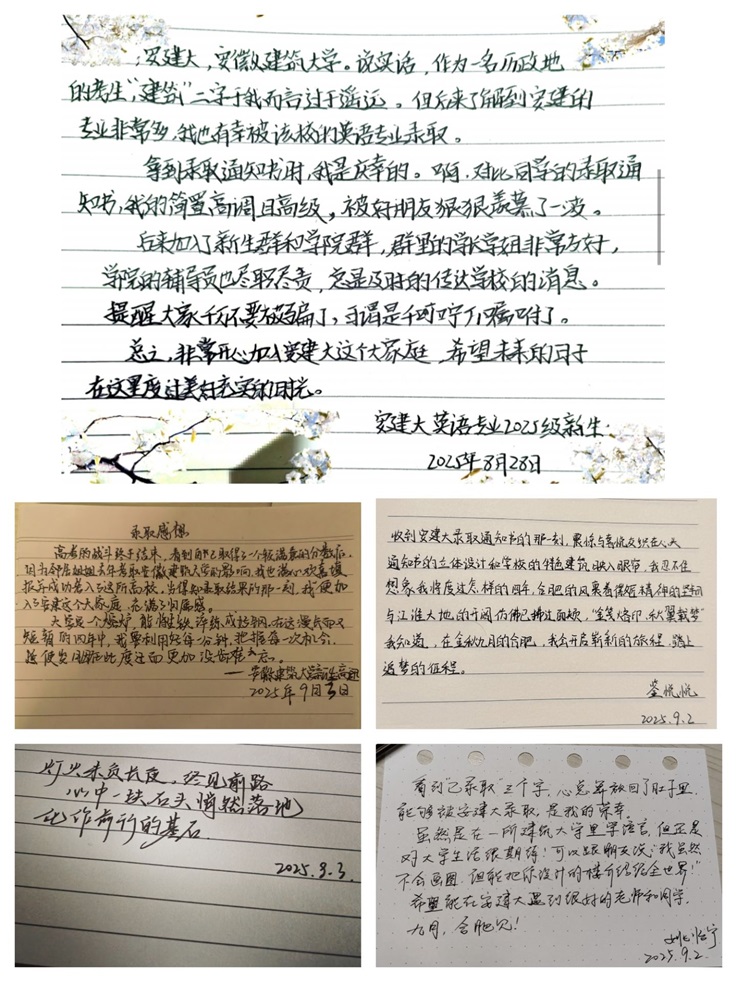 安建大，安徽建筑大学。说实话，作为一名历政地
的考生，“建筑”二字于我而言过于遥远。但后来了解到安建的
专业非常多，我也有幸被该校的英语专业录取。
拿到录取通知书时，我是庆幸的。啊，对比同学的录取通
知书，我的简直高调且高级，被好朋友狠狠羡慕了一波。
后来加入了新生群和学院群，群里的学长学姐非常友好，
学院的辅导员也尽职尽责，总是及时的传达学校的消息。
提醒大家千万不要被骗了，可谓是千叮咛万嘱咐了。
总之，非常开心加入安建大这个大家庭，希望未来的日子
在这里度过美好充实的时光。
安建大英语专业2025级新生.
2025年8月28日
录取感想
高考的战斗终于结束，看到自己取得了一个较满意的分数后，
因为邻居姐姐去年考取安徽建筑大学的影响，我也满心欢喜填
报并成功若入了这所高校，当得知录取结果的那一刻，我便加
入了安建这个大家庭，充满了归属感。
大学是一个熔炉，能将生铁淬炼成好钢，在这漫长而又
短暂的四年中，我要利用好每一分钟，把握每一次机会，
2025年9月3日
收到安建大录取通知书的那一刻，激动与喜悦交织在心头
通知书的立体设计和学校的特色建筑映入眼帘，我忍不住
想象我将度过怎样的四年，合肥的风裹着徽骆精神的坚韧
与江淮大地的开阔仿佛已拂过面颊，“金笺烙印，秋翼载梦”
我知道，在金秋九月的合肥，我会开启崭新的旅程，踏上
追梦的征程。
悦悦
2025.9.2
灯火未负长夜，终见前路
心中一块石头悄然落地
化作前行的基石
2025.9.3.
看到“已录取”三个字，心总算放回了肚子里，
能够被安建大录取，是我的荣幸。
虽然是在一所建筑大学里学语言，但还是
对大学生活很期待！可以跟朋友说“我虽然
不会画图，但能把你设计的楼介绍给全世界！”
希望能在安建大遇到很好的老师和同学。
九月，合肥见！
姚怡宁
2025.9.2.